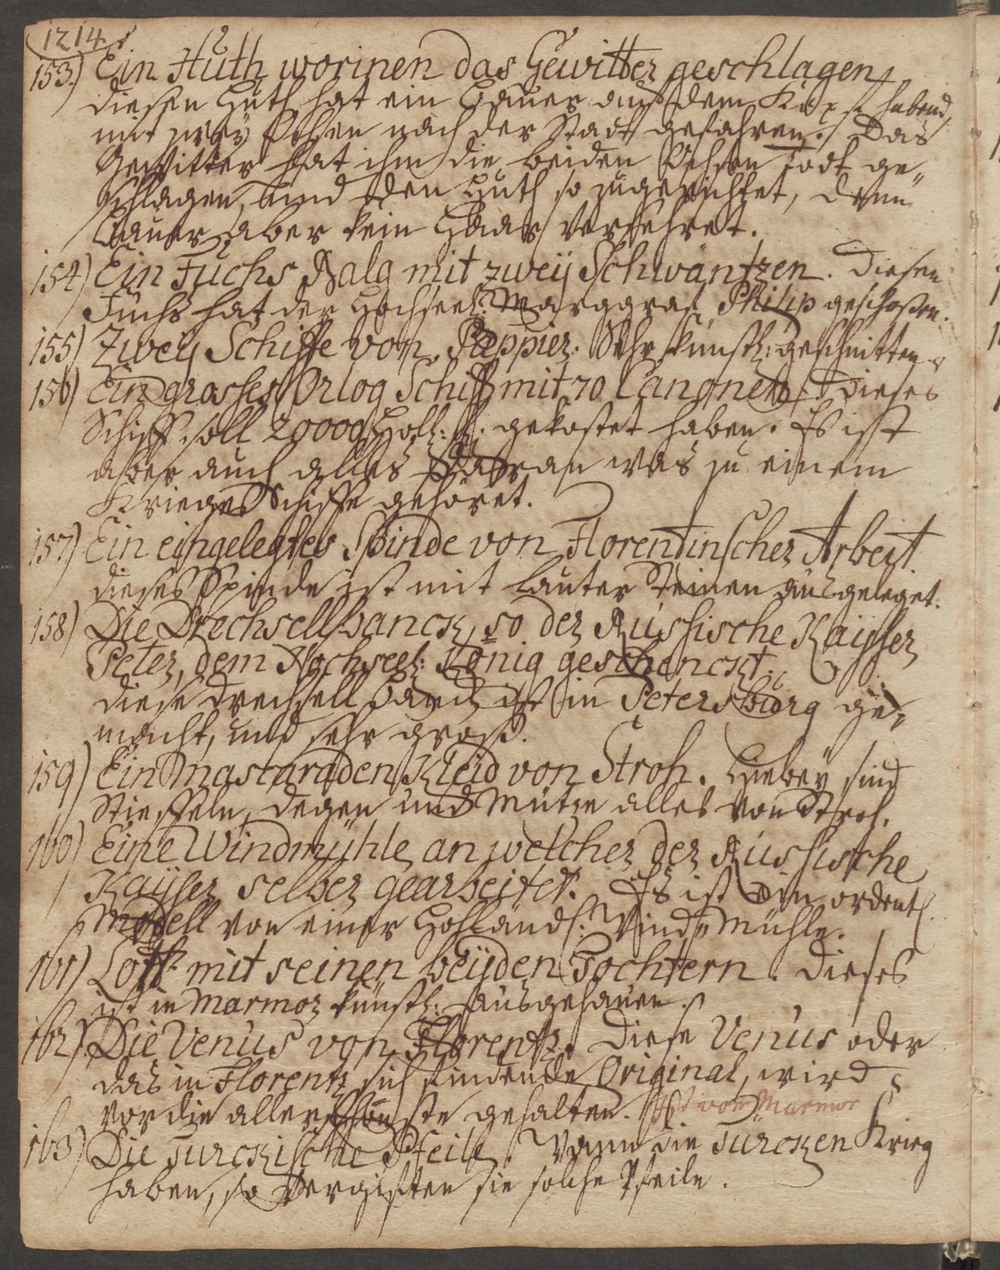 1214
153.) Ein Huth worinnen das Gewitter geschlagen,
diesen Huth hat ein Bauer auf dem Kopf habend,
mit zwey Ochsen nach der Stadt gefahren. Das
Gewitter hat ihm die beiden Ochsen todt ge„
schlagen, und den Huth so zugerichtet, dem
Bauer aber kein Haar versehret.
154) Ein Fuchs Balg mit zweij Schwäntzen. Diesen
Fuchs hat der Hochseel: Marggraf Philip geschossen.
155) Zweij Schiffe von Pappier. Sehr künstl: geschnitten.
156) Ein grosses Orlog Schiff mit 70 Canonen. Dieses
Schiff soll 20000 Holl: fl. gekostet haben. Es ist
aber auch alles daran was zu einem
Krieges Schiffe gehöret.
157) Ein eingelegtes Spinde von Florentinscher Arbeit
dieses Spinde ist mit lauter Steinen ausgeleget.
158) Die Drechsellbanck, so der Russische Kaijser
Peter, dem Hochseel: König geschenckt.
diese Drechsell Banck ist in Petersburg ge„
macht, und sehr groß.
159) Ein Mascaraden Kleid von Stroh. Hiebey sind
Stieffeln, Degen und Mütze alles von Stroh.
160) Eine Windmühle an welcher der Russische
Kaijser selber gearbeitet. Es ist ein ordentl.
Modell von einer Holländ: Wind„Mühle.
161) Loth mit seinen beijden Töchtern. dieses
ist in Marmor künstl: ausgehauen.
162) Die Venus von Florentz. Diese Venus oder
das in Florentz sich findende Original, wird
vor die allerschönste gehalten. Ist von Marmor
163) Die turckische Pfeile. Wann die Türcken Krieg
haben, so vergifften sie solche Pfeile.